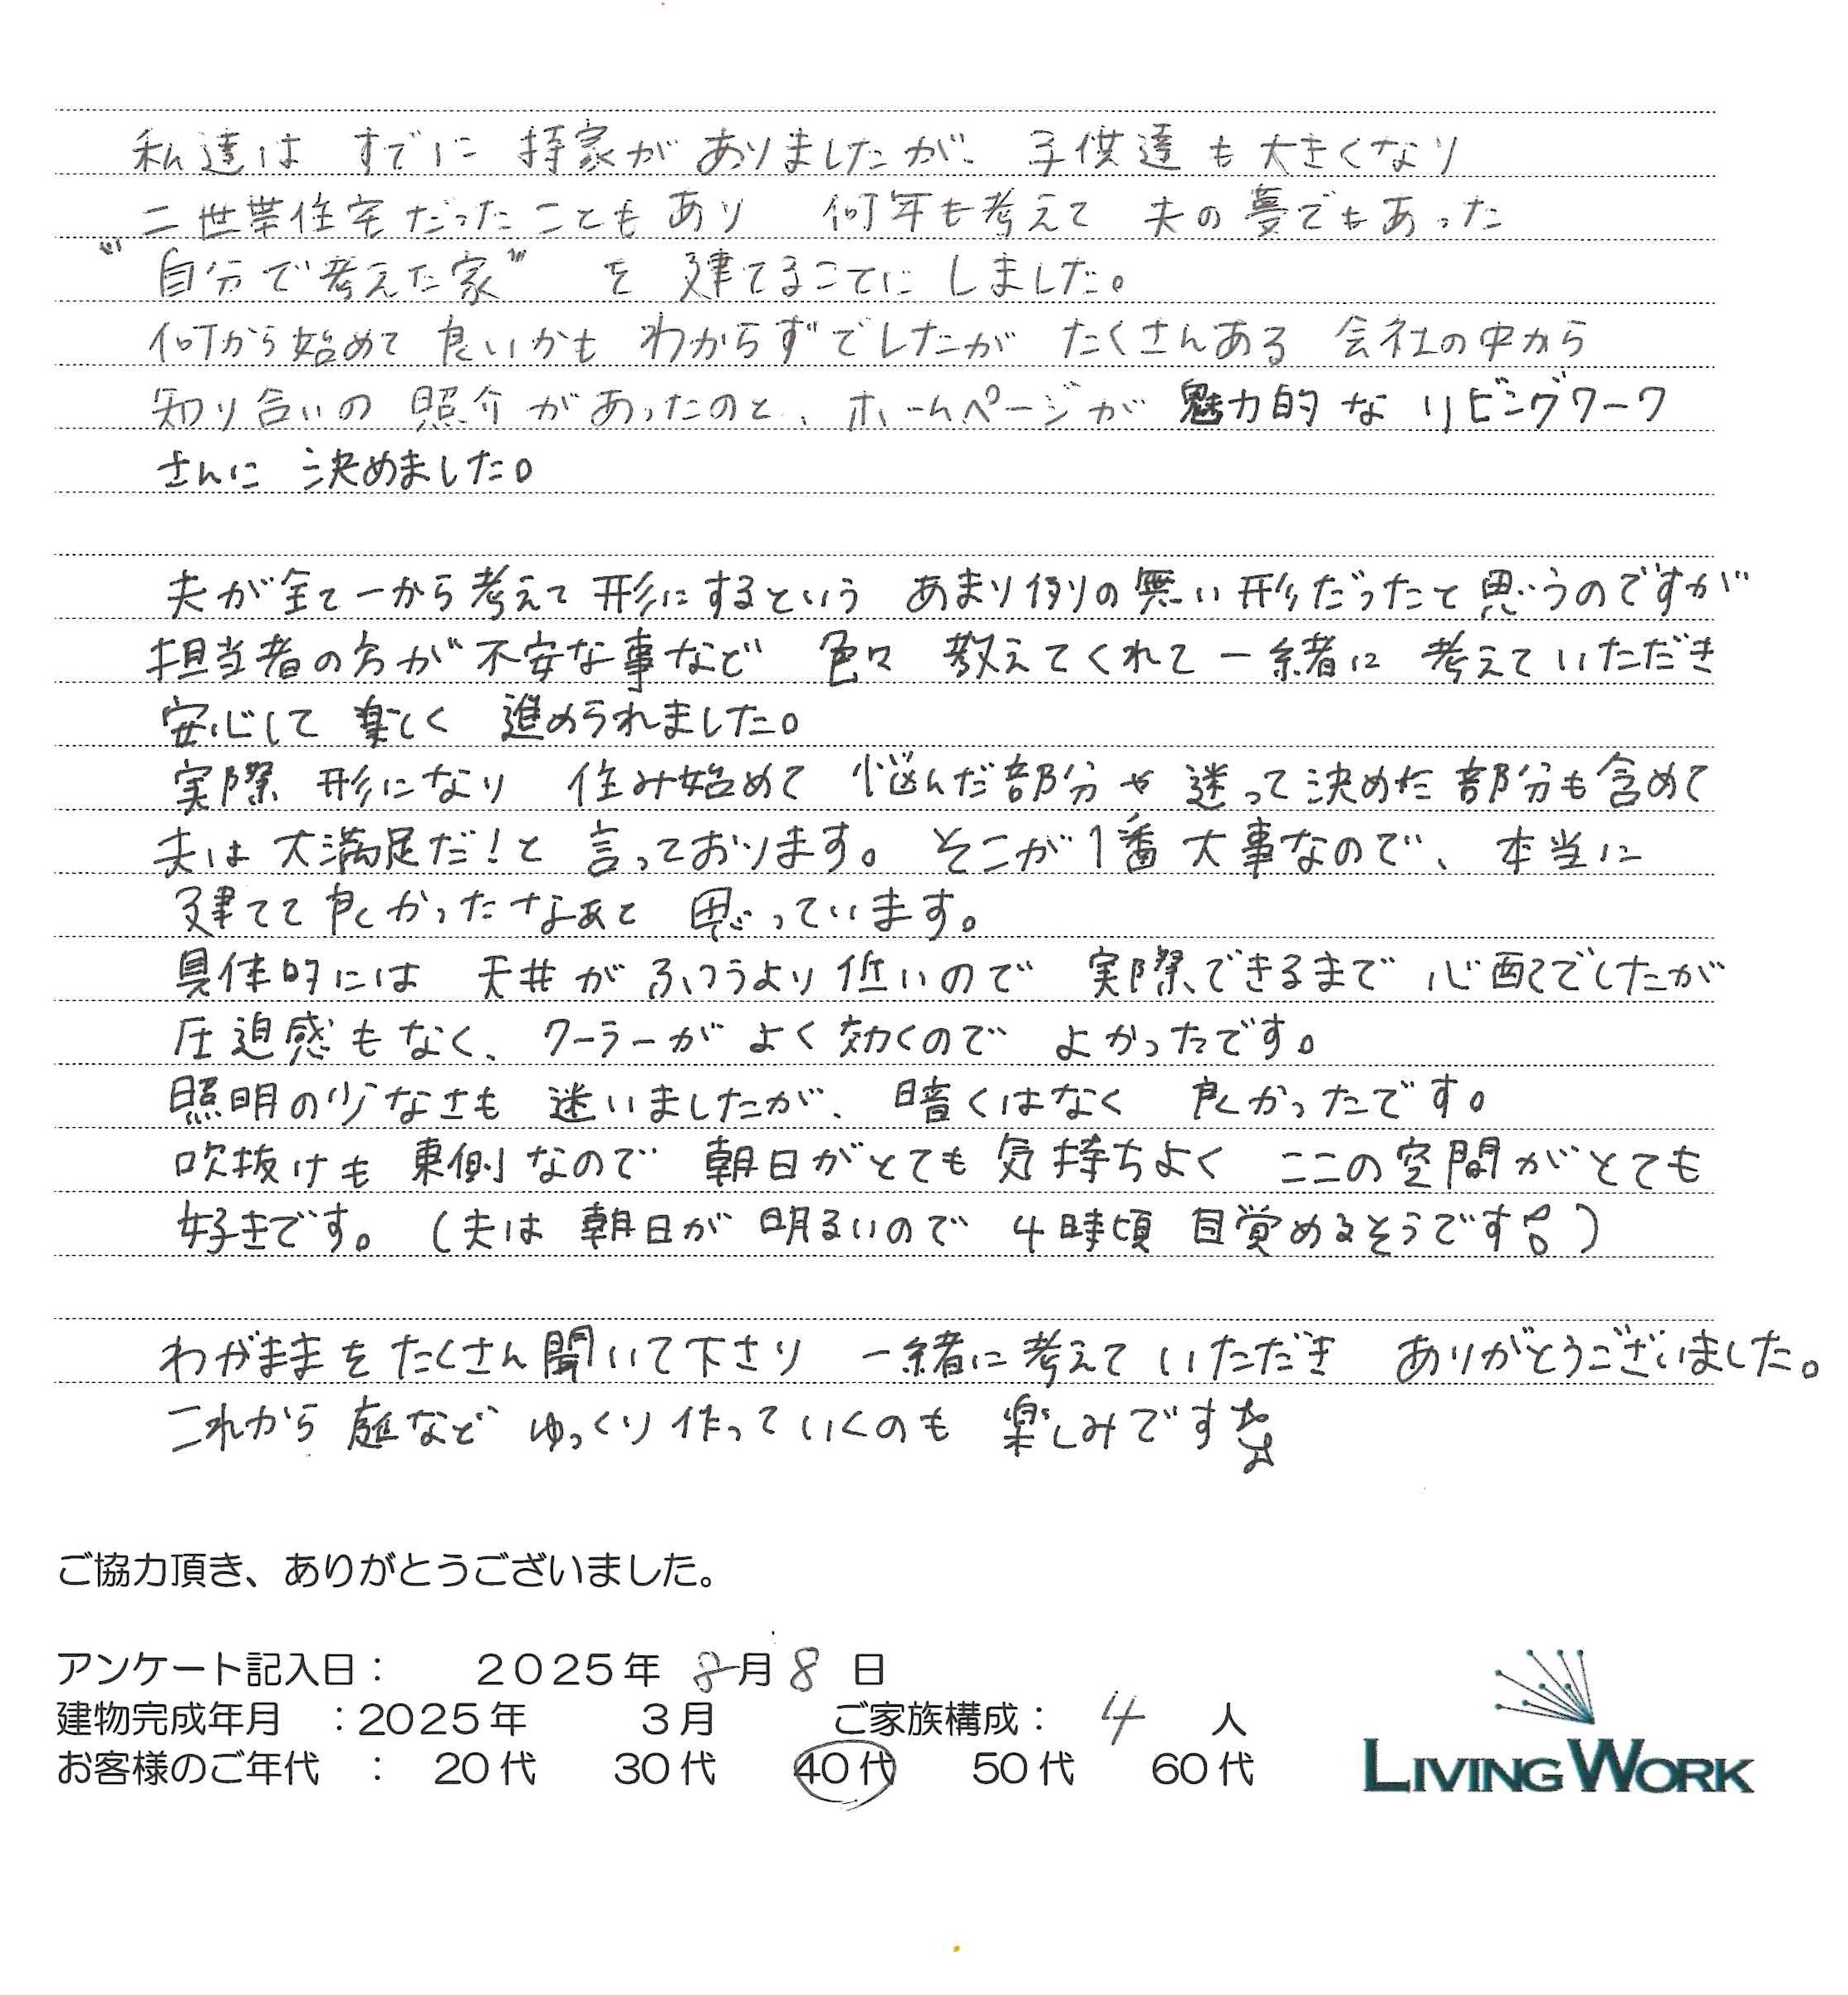 私達は すでに 持家が ありましたが、 子供達も大きくなり
二世帯住宅だったこともあり 何年も考えて 夫の夢でもあった
"自分で考えた家" を 建てることにしました。
何から始めて 良いかも わからずでしたが たくさんある 会社の中から
知り合いの 照介があったのと、ホームページが 魅力的な リビングワーク
さんに 決めました。
夫が全て一から考えて 形にするという あまり例の無い形だったと思うのですが
担当者の方が不安な事など 色々 教えてくれて一緒に 考えていただき
安心して 楽しく 進められました。
実際 形になり 住み始めて 悩んだ部分や 迷って決めた部分も含めて
夫は 大満足だ!と 言っております。そこが1番大事なので、 本当に
建てて良かったなぁと 思っています。
具体的には 天井が ふつうより 低いので 実際できるまで 心配でしたが
圧迫感もなく、クーラーが よく効くので よかったです。
照明の少なさも 迷いましたが、暗くはなく 良かったです。
吹抜けも 東側なので 朝日がとても気持ちよく ここの空間がとても
好きです。(夫は 朝日が 明るいので 4時頃 目覚めるそうです)
わがままをたくさん聞いて下さり 一緒に考えていただき ありがとうございました。
これから 庭など ゆっくり作っていくのも 楽しみです
ご協力頂き、ありがとうございました。
アンケート記入日： 2025年 8月 8 日
建物完成年月 ：2025年 3月 ご家族構成： 4 人
お客様のご年代 ： 20代 30代 40代 50代 60代
LIVING WORK